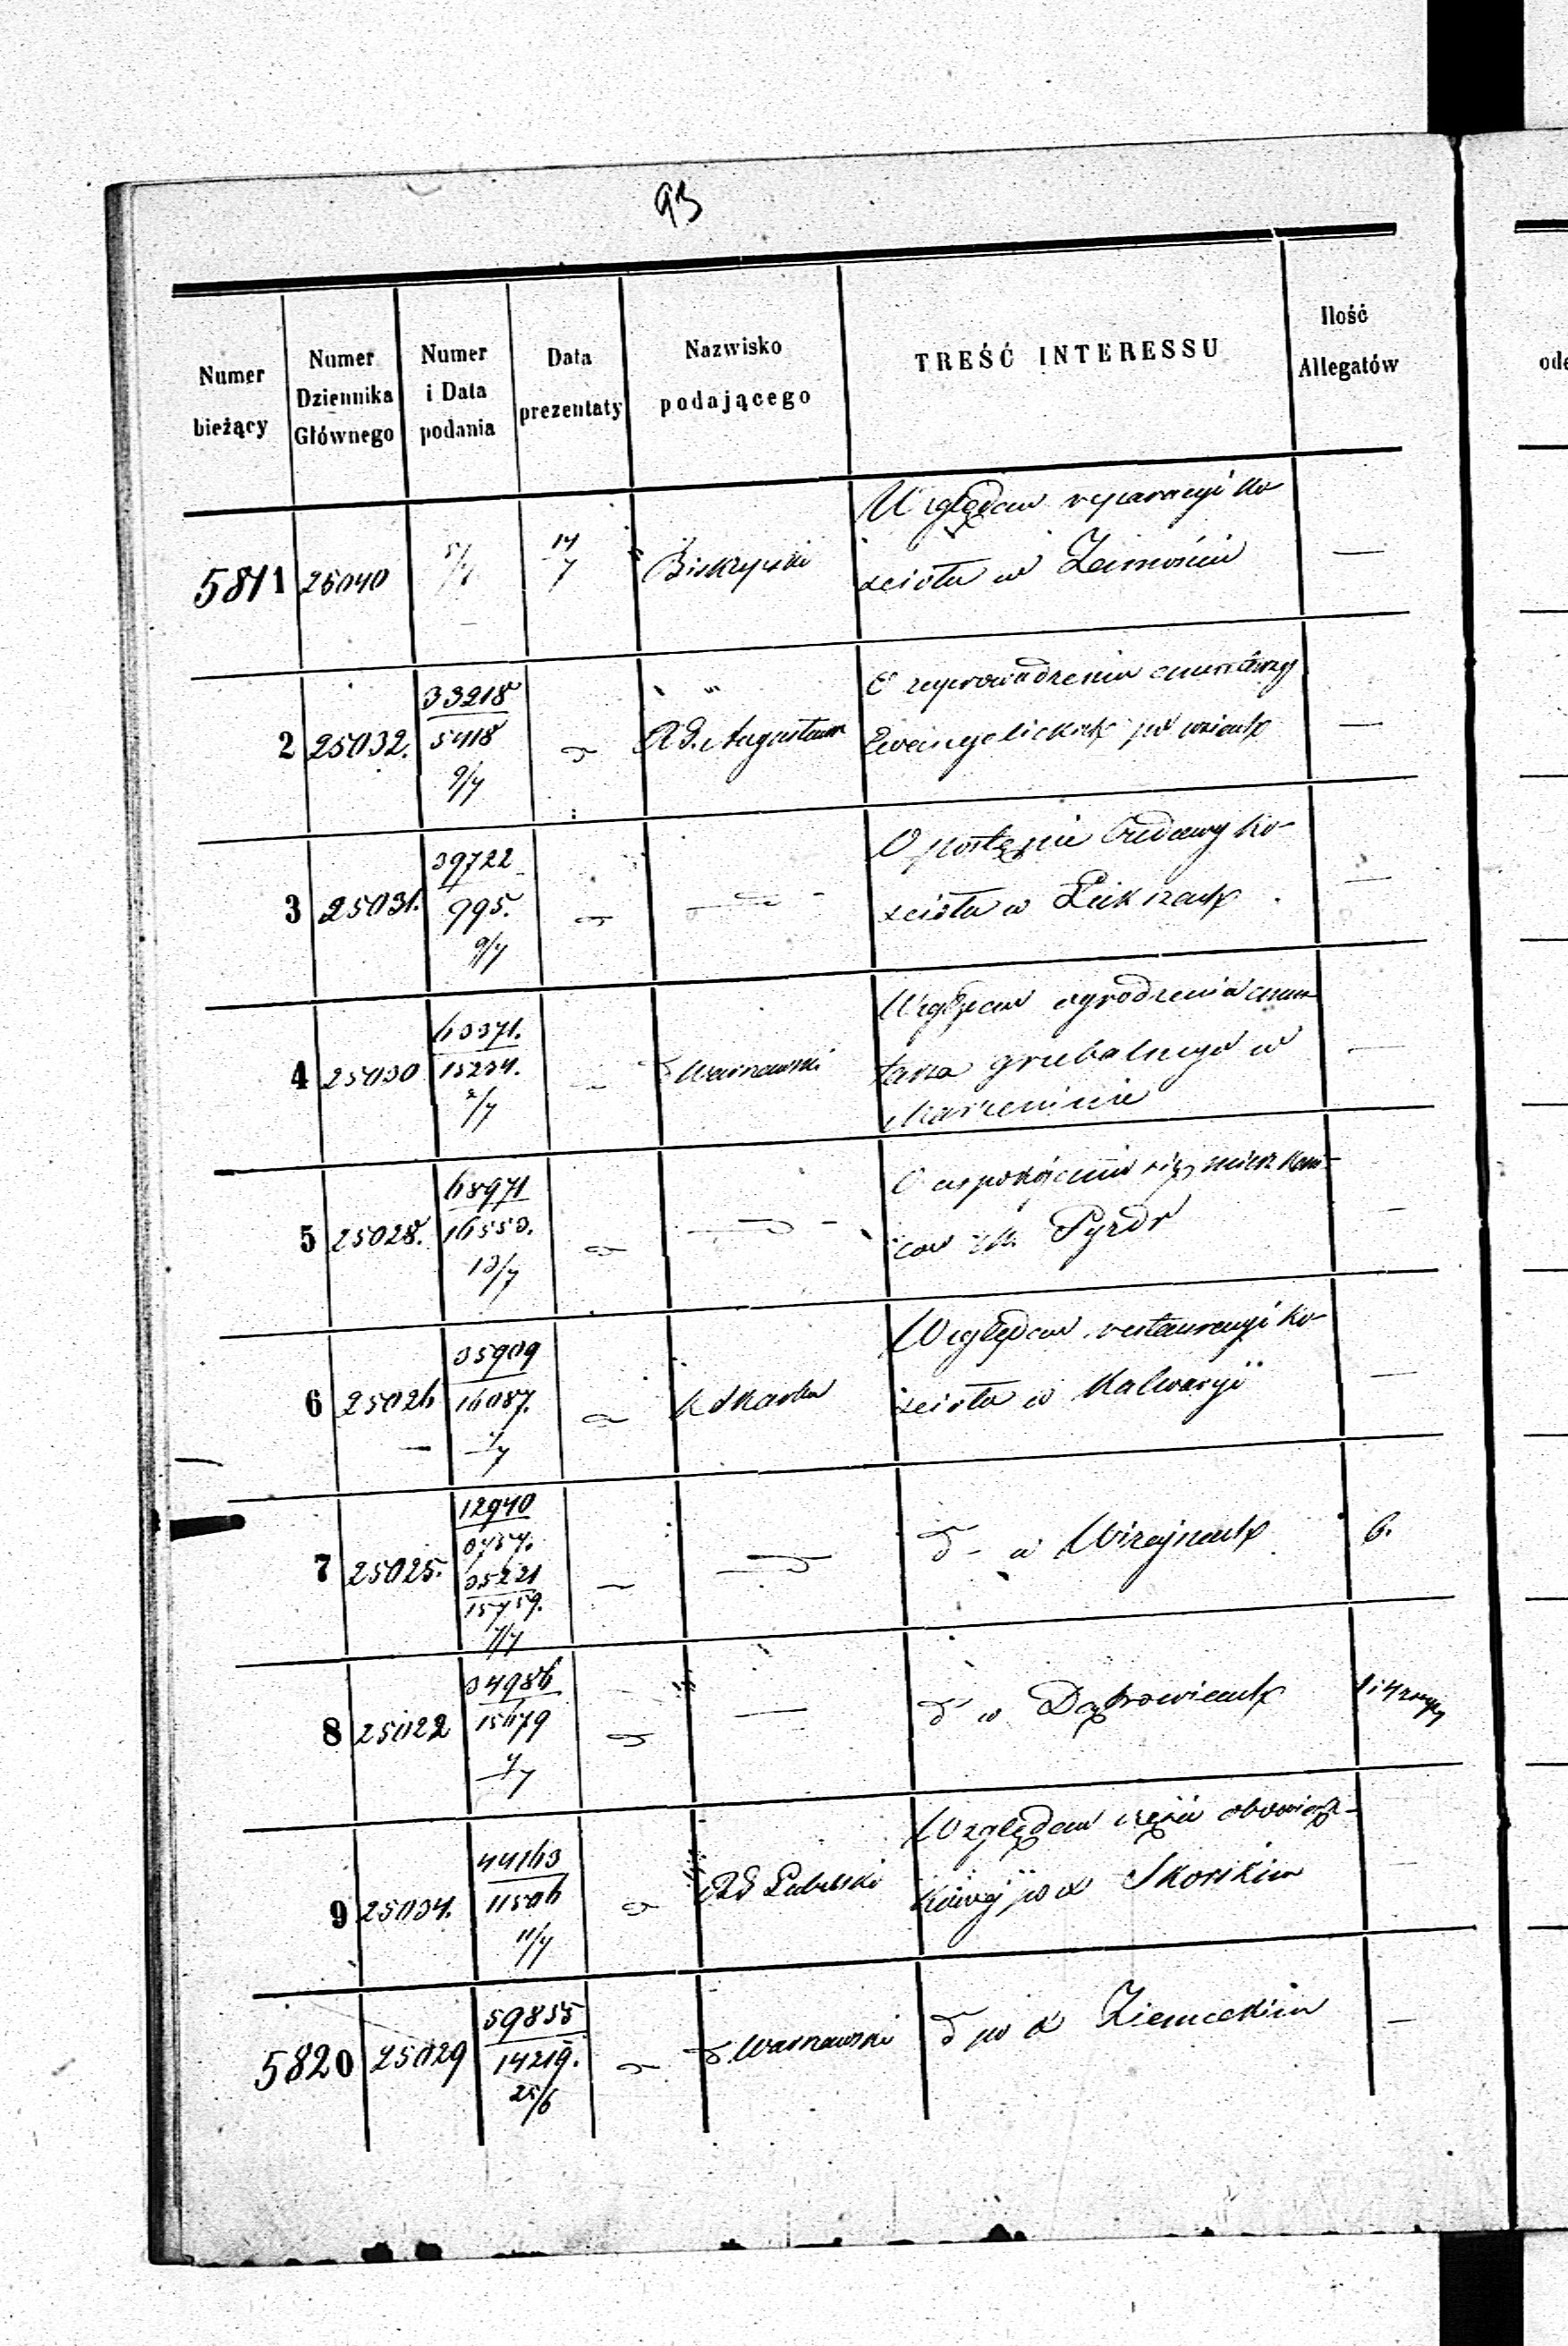 93
Numer bieżący
Numer Dziennika Głównego
Numer i Data podania
Data prezentaty
Nazwisko podającego
TREŚĆ INTERESSU
Ilość Allegatów
5811 25040 5/7 14/7 Biskupski
Względem reparacyi ko-
ścioła w Zamościu —
2 25032. 33218
5418
9/7
R.G. Augustow
O zaprowadzeniu cmentarzy
Ewangelickich po wsiach —
3 25031. 39722
995.
9/7
O postępie budowy ko-
ścioła w Lukszach —
4 25030 63371.
15234.
2/7
Warszawski
Względem ogrodzenia cmen-
tarza grzebalnego w
Marzeninie —
5 25028. 68971
16553.
13/7
O uspokojenie się mieszkań-
ców m. Pyzdr —
6 25026 35909
16087.
7
Względem restauracyi ko-
ścioła w Kalwaryi —
7 25025. 12940
35221
15759.
7/7
d- w Wizajnach 6.
8 25022 34986
15679
7
d w Dąbrowicach
9 25034. 44163
11506
11/7
RG Lubelski
Względem
X Skorskim
5820 25029 59855
14219.
25/6
d. Warszawski
d po X Ziemeckim —